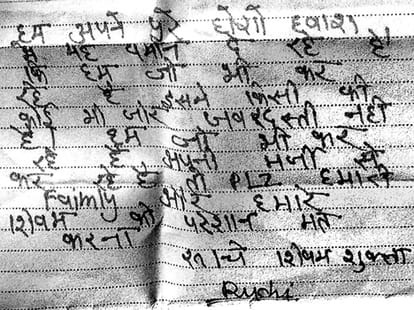 हम अपने पूरे होशो हवाश
में यह बयान दे रहे है।
कि हम जो भी कर
रहे है इसमे किसी की
कोई भी जोर जबरदस्ती नही
है हम जो भी कर
रहे है अपनी मर्जी से
कर रहे है तो PLZ हमारी
Faimly और हमारे
शिवम को परेशान मत
करना
रूचि शिवम शुक्ला
Ruchi